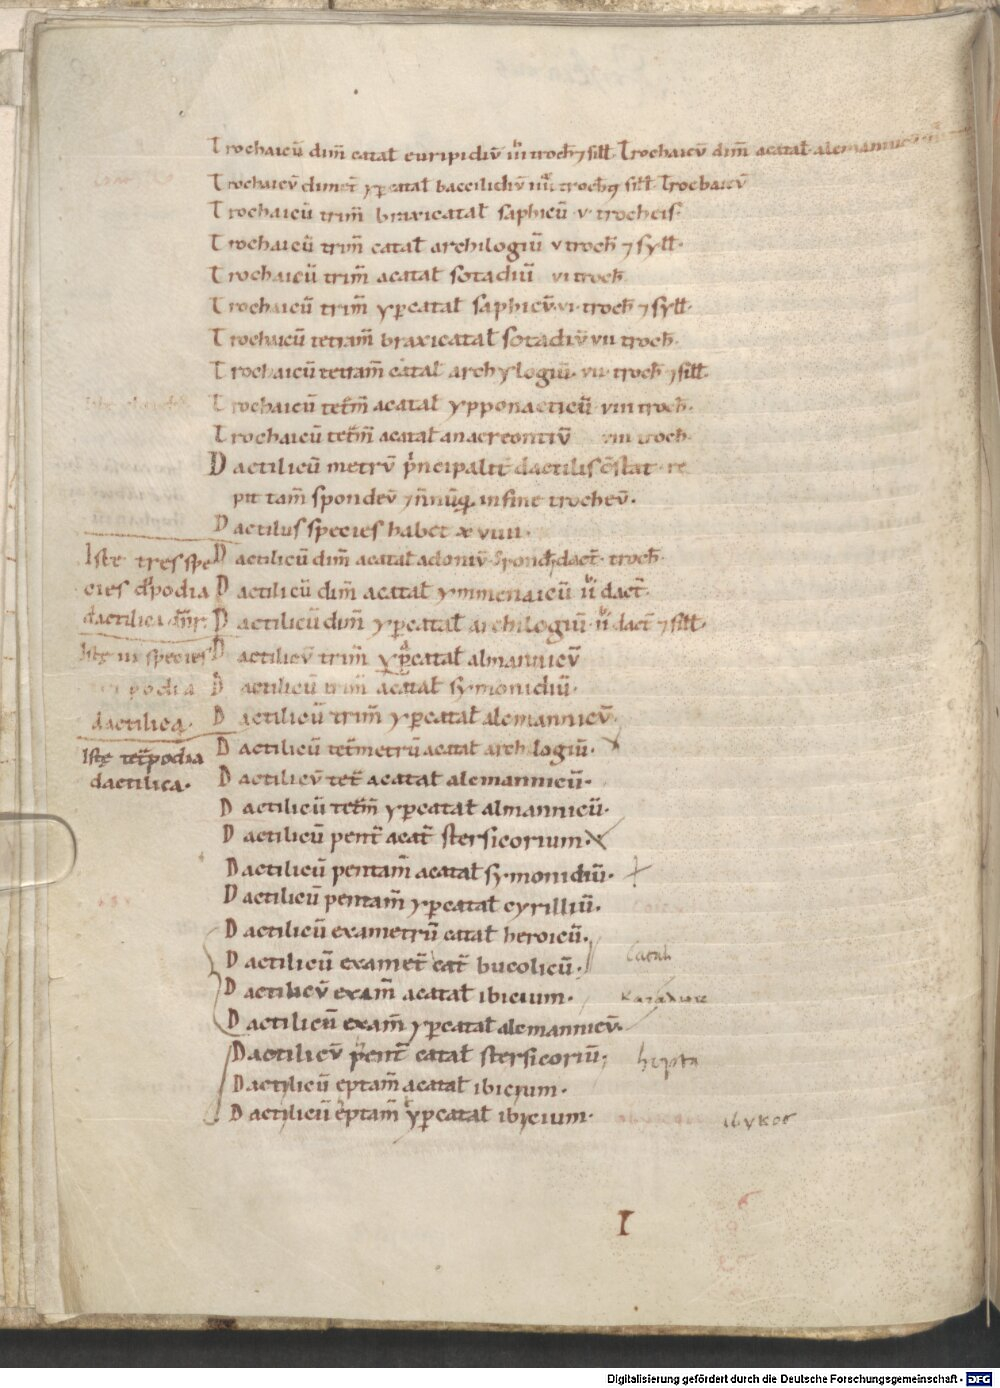 Trochaicū dim̄ catal euripidiū iii troch 7 sill. Trochaicū dim̄ acatal alemannicū
Trochaicū dimet̄ yꝑcatal baccilidiū iiii troch 7 sill. Trochaicū
Trochaicū trim̄ braxicatal saphicū v trocheis.
Trochaicū trim̄ catal archilogiū v troch 7 syll.
Trochaicū trim̄ acatal sotadiū vi troch
Trochaicū trim̄ yꝑcatal saphicū vi troch 7 syll.
Trochaicū tetram̄ braxicatal sotadiū vii troch.
Trochaicū tetram̄ catal archylogiū. vii troch 7 sill.
Trochaicū tetm̄ acatal ypponacticū viii troch.
Trochaicū tetm̄ acatal anacreontiū viii troch.
Dactilicū metrū pncipalit dactilis c̄stat re
pit tam̄ spondeū 7 nn̄ūq in fine trocheū.
Dactilus species habet xviiii.
Iste tres spe
cies dipodia
dactilica dn̄r
Dactilicū dim̄ acatal adoniū spond dact troch.
Dactilicū dim̄ acatal ymmenaicū ii dact.
Dactilicū dim̄ yꝑcatal archilogiū ii dact 7 sill.
Istę iii species
tripodia
dactilica.
Dactilicū trim̄ yꝑcatal almannicū
Dactilicū trim̄ acatal symonidiū.
Dactilicū trim̄ yꝑcatal alemannicū.
Istę tet̄podia
dactilica.
Dactilicū tet̄metrū acatal archilogiū.
Dactilicū tet̄ acatal alemannicū.
Dactilicū tetm̄ yꝑcatal almannicū.
Dactilicū pent̄ acat̄ stersicorium.
Dactilicū pentam̄ acatal symonidiū.
Dactilicū pentam̄ yꝑcatal cyrilliū.
Dactilicū exametrū catal heroicū.
Dactilicū examet̄ cat̄ bucolicū. Catal
Dactilicū exam̄ acatal ibicium.
Dactilicū exam̄ yꝑcatal alemannicū.
Dactilicū pent̄ catal stersicoriū; hepta
Dactilicū eptam̄ acatal ibicium.
Dactilicū eptam̄ yꝑcatal ibycium. ibykos
I
Digitalisierung gefördert durch die Deutsche Forschungsgemeinschaft - DFG